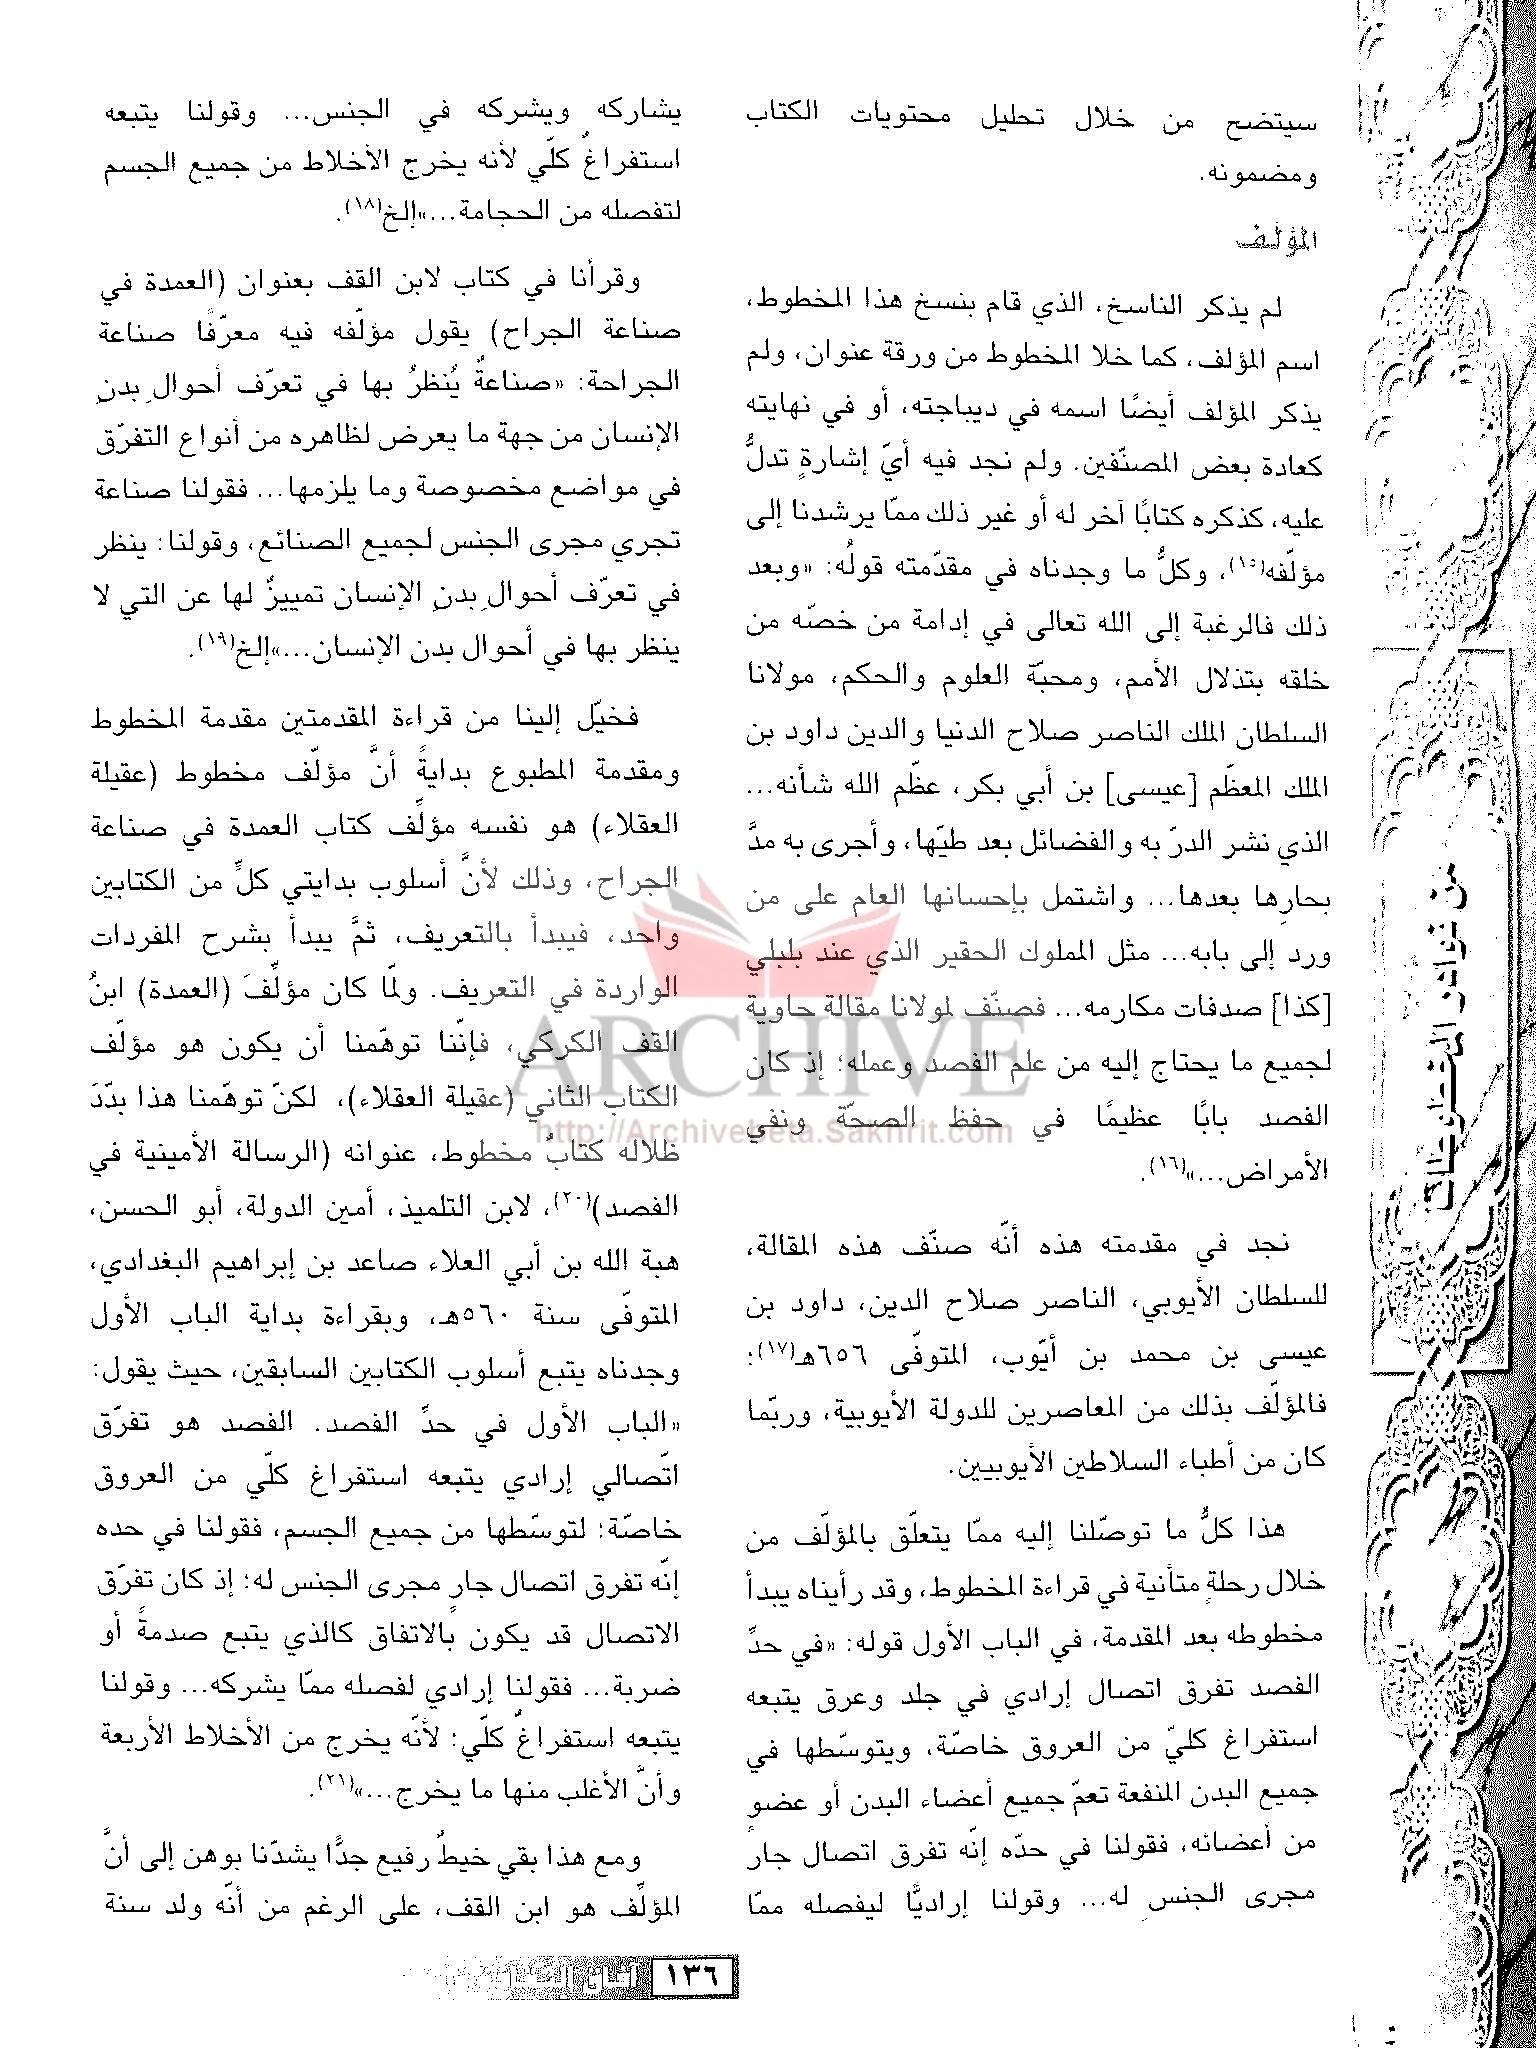 سيتضح من خلال تحليل محتويات الكتاب
ومضمونه.
المؤلف
لم يذكر الناسخ، الذي قام بنسخ هذا المخطوط،
اسم المؤلف، كما خلا المخطوط من ورقة عنوان، ولم
يذكر المؤلف أيضًا اسمه في ديباجته، أو في نهايته
كعادة بعض المصنّفين. ولم نجد فيه أيّ إشارةٍ تدلُّ
عليه، كذكره كتابًا آخر له أو غير ذلك ممّا يرشدنا إلى
مؤلّفه(١٥)، وكلُّ ما وجدناه في مقدّمته قولُه: «وبعد
ذلك فالرغبة إلى الله تعالى في إدامة من خصّه من
خلقه بتذلال الأمم، ومحبّة العلوم والحكم، مولانا
السلطان الملك الناصر صلاح الدنيا والدين داود بن
الملك المعظّم [عيسى] بن أبي بكر، عظّم الله شأنه...
الذي نشر الدرّ به والفضائل بعد طيّها، وأجرى به مدَّ
بحارِها بعدها... واشتمل بإحسانها العام على من
ورد إلى بابه... مثل المملوك الحقير الذي عند بلبلي
[كذا] صدفات مكارمه... فصنّف لمولانا مقالة حاوية
لجميع ما يحتاج إليه من علم الفصد وعمله؛ إذ كان
الفصد بابًا عظيمًا في حفظ الصحّة ونفي
الأمراض...»(١٦).
نجد في مقدمته هذه أنّه صنّف هذه المقالة،
للسلطان الأيوبي، الناصر صلاح الدين، داود بن
عيسى بن محمد بن أيّوب، المتوفّى ٦٥٦هـ(١٧)؛
فالمؤلّف بذلك من المعاصرين للدولة الأيوبية، وربّما
كان من أطباء السلاطين الأيوبيين.
هذا كلُّ ما توصّلنا إليه ممّا يتعلّق بالمؤلّف من
خلال رحلةٍ متأنية في قراءة المخطوط، وقد رأيناه يبدأ
مخطوطه بعد المقدمة، في الباب الأول قوله: «في حدِّ
الفصد تفرق اتصال إرادي في جلد وعرق يتبعه
استفراغ كليّ من العروق خاصّة، ويتوسّطها في
جميع البدن المنفعة تعمّ جميع أعضاء البدن أو عضوٍ
من أعضائه، فقولنا في حدّه إنّه تفرق اتصال جار
مجرى الجنسِ له... وقولنا إراديًّا ليفصله ممّا
يشاركه ويشركه في الجنس... وقولنا يتبعه
استفراغٌ كلّي لأنه يخرج الأخلاط من جميع الجسم
لتفصله من الحجامة...»إلخ(١٨).
وقرأنا في كتاب لابن القف بعنوان (العمدة في
صناعة الجراح) يقول مؤلّفه فيه معرّفًا صناعة
الجراحة: «صناعةٌ يُنظرُ بها في تعرّف أحوالِ بدنِ
الإنسان من جهة ما يعرض لظاهره من أنواع التفرّق
في مواضع مخصوصة وما يلزمها... فقولنا صناعة
تجري مجرى الجنس لجميع الصنائع، وقولنا: ينظر
في تعرّف أحوالِ بدنِ الإنسان تمييزٌ لها عن التي لا
ينظر بها في أحوال بدن الإنسان...»إلخ(١٩).
فخيّل إلينا من قراءة المقدمتين مقدمة المخطوط
ومقدمة المطبوع بدايةً أنَّ مؤلّف مخطوط (عقيلة
العقلاء) هو نفسه مؤلِّف كتاب العمدة في صناعة
الجراح، وذلك لأنَّ أسلوب بدايتي كلٍّ من الكتابين
واحد، فيبدأ بالتعريف، ثمَّ يبدأ بشرح المفردات
الواردة في التعريف. ولمّا كان مؤلِّفَ (العمدة) ابنُ
القف الكركي، فإنّنا توهّمنا أن يكون هو مؤلّف
الكتاب الثاني (عقيلة العقلاء)، لكنّ توهّمنا هذا بدّدَ
ظلاله كتابٌ مخطوط، عنوانه (الرسالة الأمينية في
الفصد)(٢٠)، لابن التلميذ، أمين الدولة، أبو الحسن،
هبة الله بن أبي العلاء صاعد بن إبراهيم البغدادي،
المتوفّى سنة ٥٦٠هـ، وبقراءة بداية الباب الأول
وجدناه يتبع أسلوب الكتابين السابقين، حيث يقول:
«الباب الأول في حدِّ الفصد. الفصد هو تفرّق
اتّصالي إرادي يتبعه استفراغ كلّي من العروق
خاصّة؛ لتوسّطها من جميع الجسم، فقولنا في حده
إنّه تفرق اتصال جارٍ مجرى الجنس له؛ إذ كان تفرّق
الاتصال قد يكون بالاتفاق كالذي يتبع صدمةً أو
ضربة... فقولنا إرادي لفصله ممّا يشركه... وقولنا
يتبعه استفراغٌ كلّي: لأنّه يخرج من الأخلاط الأربعة
وأنَّ الأغلب منها ما يخرج...»(٢١).
ومع هذا بقي خيطٌ رفيع جدًّا يشدّنا بوهن إلى أنَّ
المؤلِّف هو ابن القف، على الرغم من أنّه ولد سنة
ARCHIVE
http://Archivebeta.Sakhrit.com
١٣٦